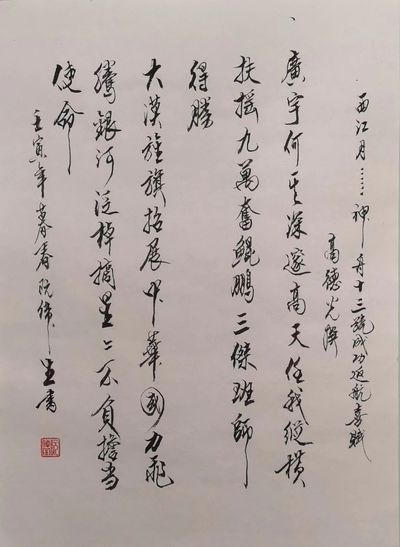 西江月……神舟十三號成功返航喜賦
高德光撰
廣宇何其深邃高天任我縱橫
扶搖九萬奮鯤鵬三傑班師
得勝
大漢旌旗招展中華國力飛
騰銀河泛棹摘星々不負擔当
使命
壬寅年暮春阮偉生書